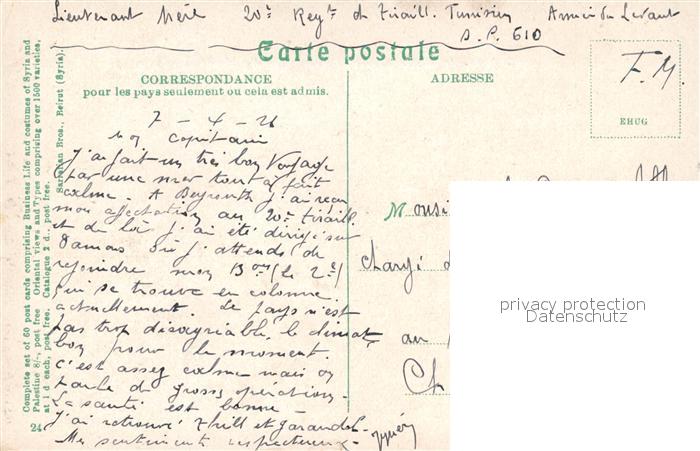 Lieutenant 20e Regt de Tiraill. Tunisiens Armée du Levant
S.P. 610
Carte postale
CORRESPONDANCE
pour les pays seulement ou cela est admis.
ADRESSE
F.M.
EHUG
7 - 4 - 26
Mon Capitaine
J'ai fait un très bon Voyage
par une mer tout à fait
calme. A Beyrouth j'ai reçu
mon affectation au 20e Tiraill.
et de là j'ai été dirigé sur
Damas où j'attends de
rejoindre mon Bon (le 2e)
qui se trouve en colonne
actuellement. Le pays n'est
pas trop désagréable, le climat
bon pour le moment.
c'est assez calme mais on
parle de grosses opérations
La santé est bonne
J'ai retrouvé et
Mes sentiments respectueux
Monsi
chargé
au
Ch
Complete set of 60 post cards comprising Business Life and costumes of Syria and
Palestine 8/-, post free Oriental views and Types comprising over 1500 varieties,
at 1 d each, post free. Catalogue 2 d., post free.
Sarrafian Bros., Beirut (Syria).
24
privacy protection
Datenschutz